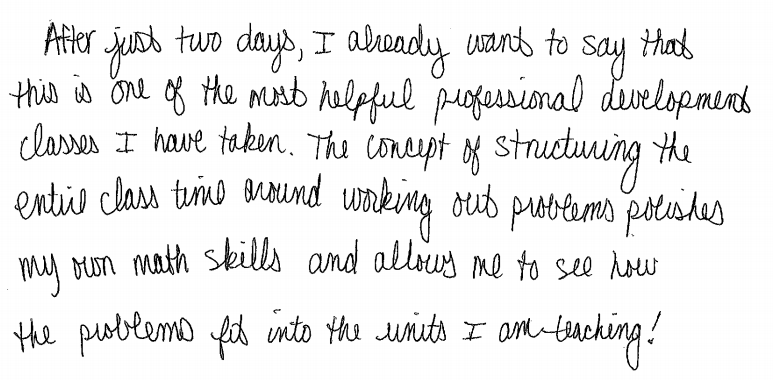 After just two days, I already want to say that
this is one of the most helpful professional development
classes I have taken. The concept of structuring the
entire class time around working out problems polishes
my own math skills and allows me to see how
the problems fit into the units I am teaching!